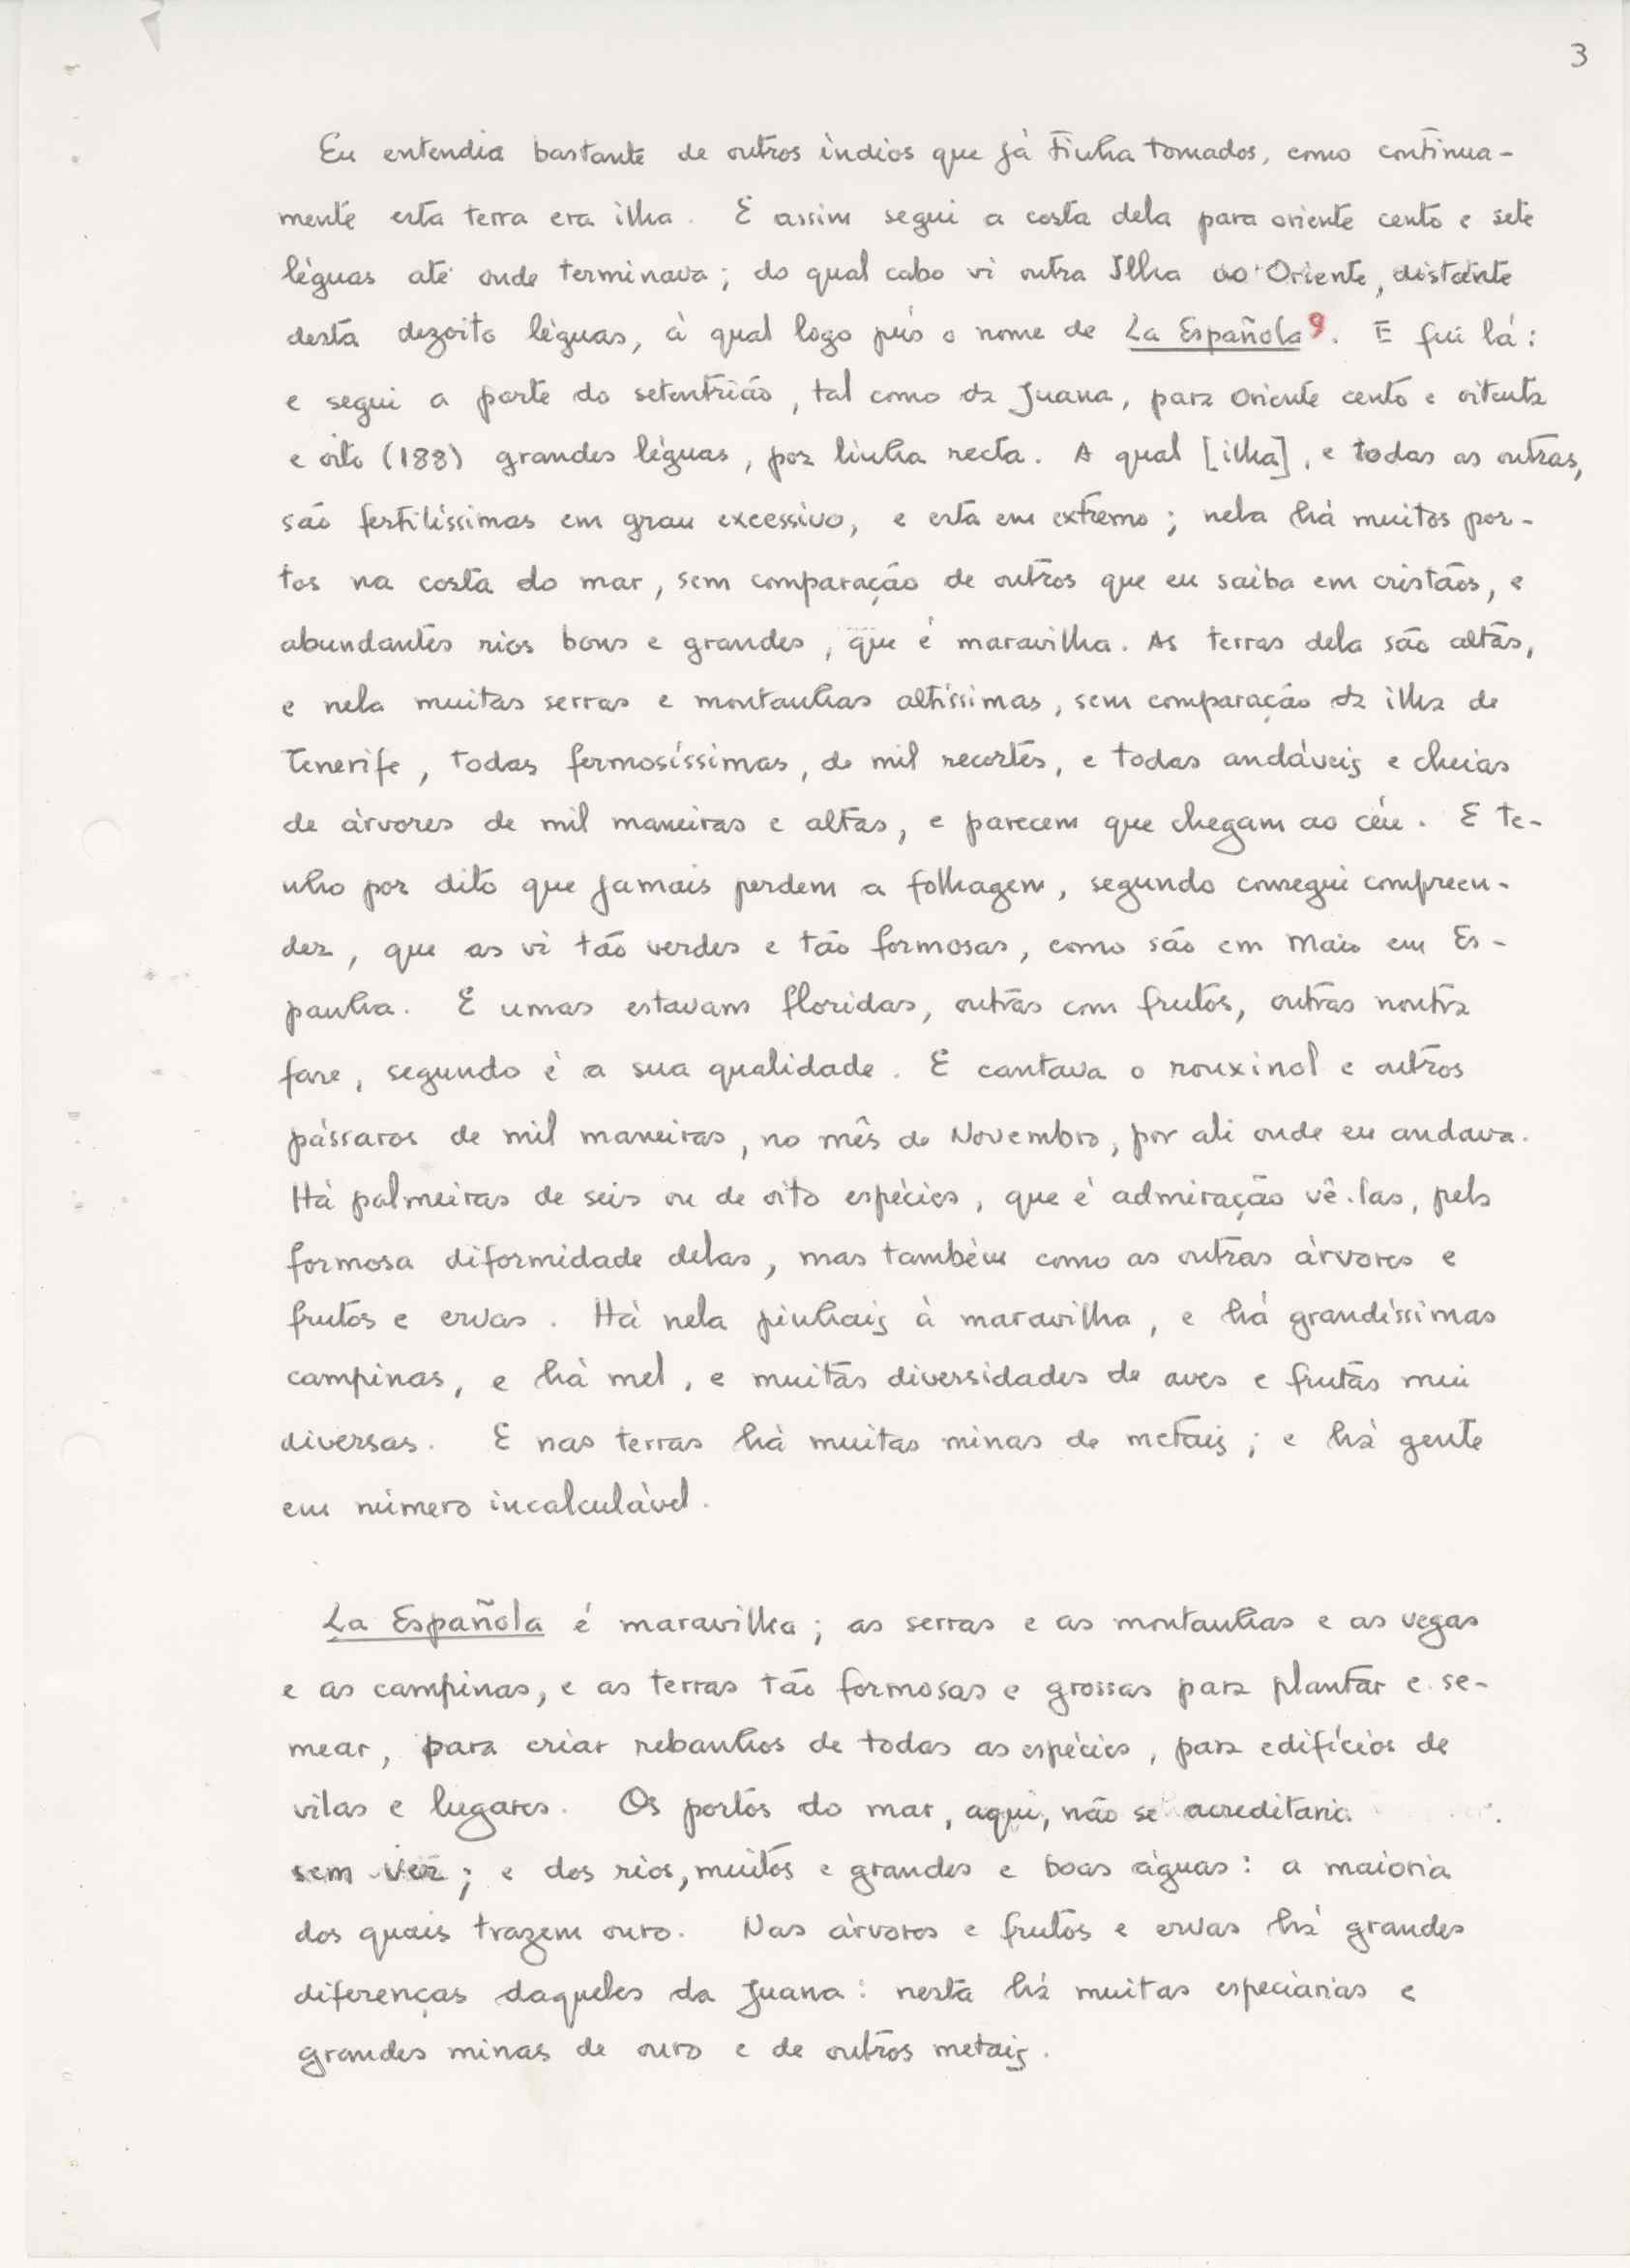 3
Eu entendia bastante de outros índios que já tinha tomados, como continua-
mente esta terra era ilha. E assim segui a costa dela para oriente cento e sete
léguas até onde terminava; do qual cabo vi outra Ilha ao Oriente, distante
desta dezoito léguas, à qual logo pus o nome de La Española 9. E fui lá:
e segui a parte do setentrião, tal como da Juana, para Oriente cento e oitenta
e oito (188) grandes léguas, por linha recta. A qual [ilha], e todas as outras,
são fertilíssimas em grau excessivo, e esta em extremo; nela há muitos por-
tos na costa do mar, sem comparação de outros que eu saiba em cristãos, e
abundantes rios bons e grandes, que é maravilha. As terras dela são altas,
e nela muitas serras e montanhas altíssimas, sem comparação da ilha de
Tenerife, todas fermosíssimas, de mil recortes, e todas andáveis e cheias
de árvores de mil maneiras e altas, e parecem que chegam ao céu. E te-
nho por dito que jamais perdem a folhagem, segundo consegui compreen-
der, que as vi tão verdes e tão formosas, como são em Maio em Es-
panha. E umas estavam floridas, outras com frutos, outras noutra
fase, segundo é a sua qualidade. E cantava o rouxinol e outros
pássaros de mil maneiras, no mês de Novembro, por ali onde eu andava.
Há palmeiras de seis ou de oito espécies, que é admiração vê-las, pela
formosa diformidade delas, mas também como as outras árvores e
frutos e ervas. Há nela pinhais à maravilha, e há grandíssimas
campinas, e há mel, e muitas diversidades de aves e frutas mui
diversas. E nas terras há muitas minas de metais; e há gente
em número incalculável.
La Española é maravilha; as serras e as montanhas e as vegas
e as campinas, e as terras tão formosas e grossas para plantar e se-
mear, para criar rebanhos de todas as espécies, para edifícios de
vilas e lugares. Os portos do mar, aqui, não se acreditaria
sem ver; e dos rios, muitos e grandes e boas águas: a maioria
dos quais trazem ouro. Nas árvores e frutos e ervas há grandes
diferenças daqueles da Juana: nesta há muitas especiarias e
grandes minas de ouro e de outros metais.